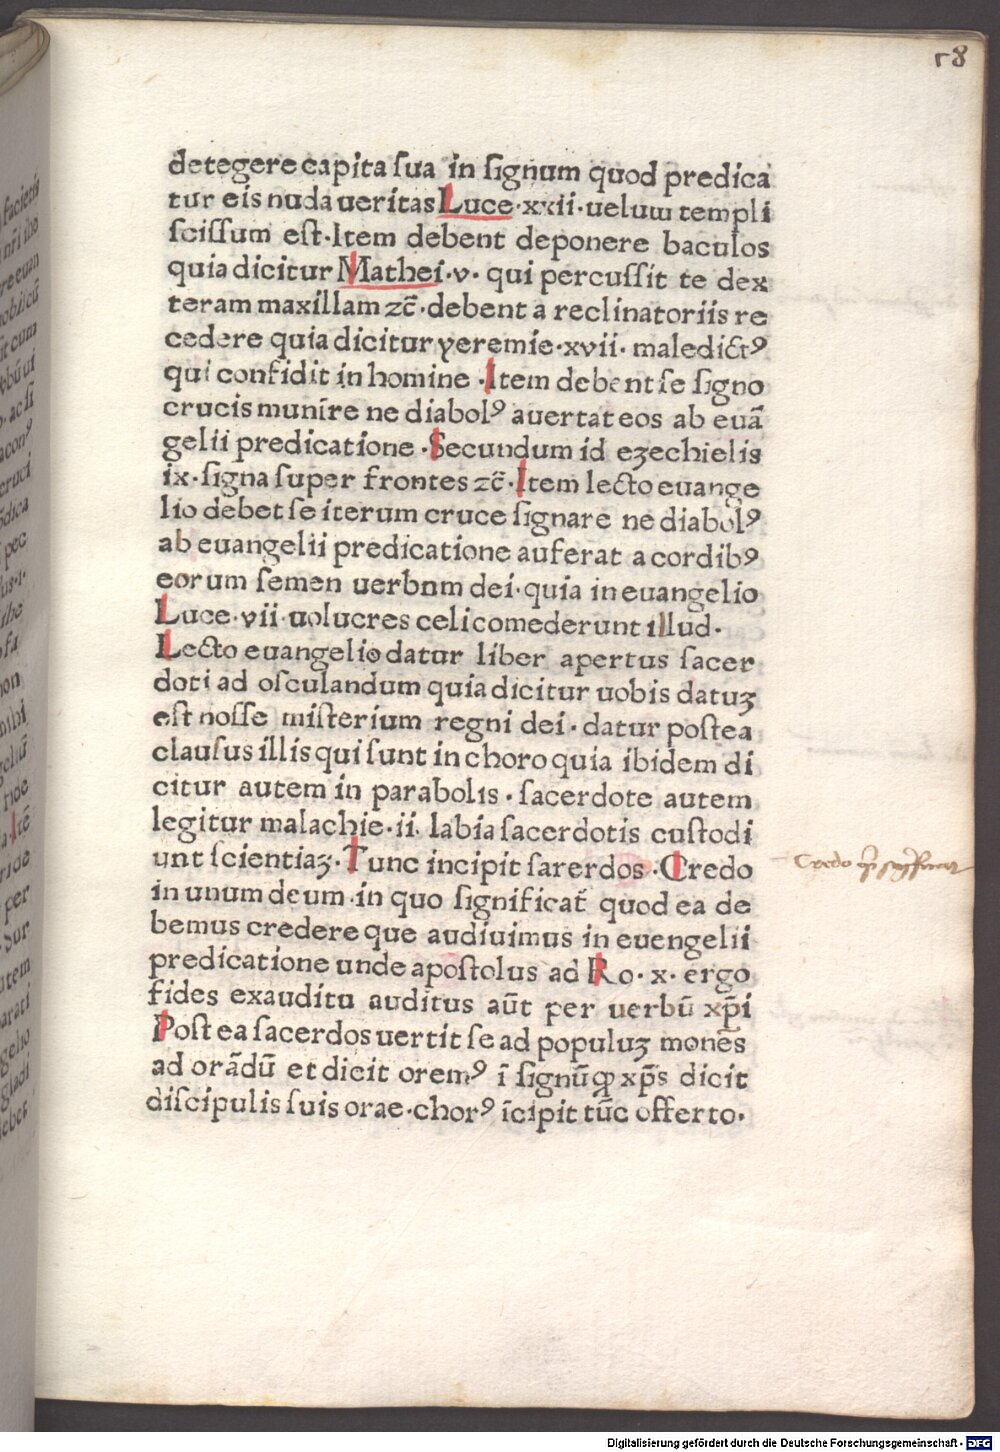 18
detegere capita sua in signum quod predica
tur eis nuda ueritas Luce·xxii·ueluɯ templi
scissum est·Item debent deponere baculos
quia dicitur Mathei·v· qui percussit te dex
teram maxillam ⁊c̄·debent a reclinatoriis re
cedere quia dicitur yeremie·xvii· maledictꝰ
qui confidit in homine ·Item debent se signo
crucis munire ne diabolꝰ auertat eos ab euā
gelii predicatione ·Secundum id ezechielis
ix·signa super frontes ⁊c̄·Item lecto euange
lio debet se iterum cruce signare ne diabolꝰ
ab euangelii predicatione auferat a cordibꝰ
eorum semen uerbnm dei·quia in euangelio
Luce·vii·uolucres celi comederunt illud·
Lecto euangelio datur liber apertus sacer
doti ad osculandum quia dicitur uobis datuꝫ
est nosse misterium regni dei·datur postea
clausus illis qui sunt in choro quia ibidem di
citur autem in parabolis·sacerdote autem
legitur malachie·ii. labia sacerdotis custodi
unt scientiaꝫ·Tunc incipit sarerdos·Credo
in unum deum·in quo significat̄ quod ea de
bemus credere que audiuimus in euengelii
predicatione unde apostolus ad Ro·x·ergo
fides exauditu auditus aūt per uerbū xp̄i
Post ea sacerdos uertit se ad populuꝫ monēs
ad orādū et dicit oremꝰ ī signū ꝙ xp̄s dicit
discipulis suis orae·chorꝰ īcipit tūc offerto·
Credo
Digitalisierung gefördert durch die Deutsche Forschungsgemeinschaft - DFG